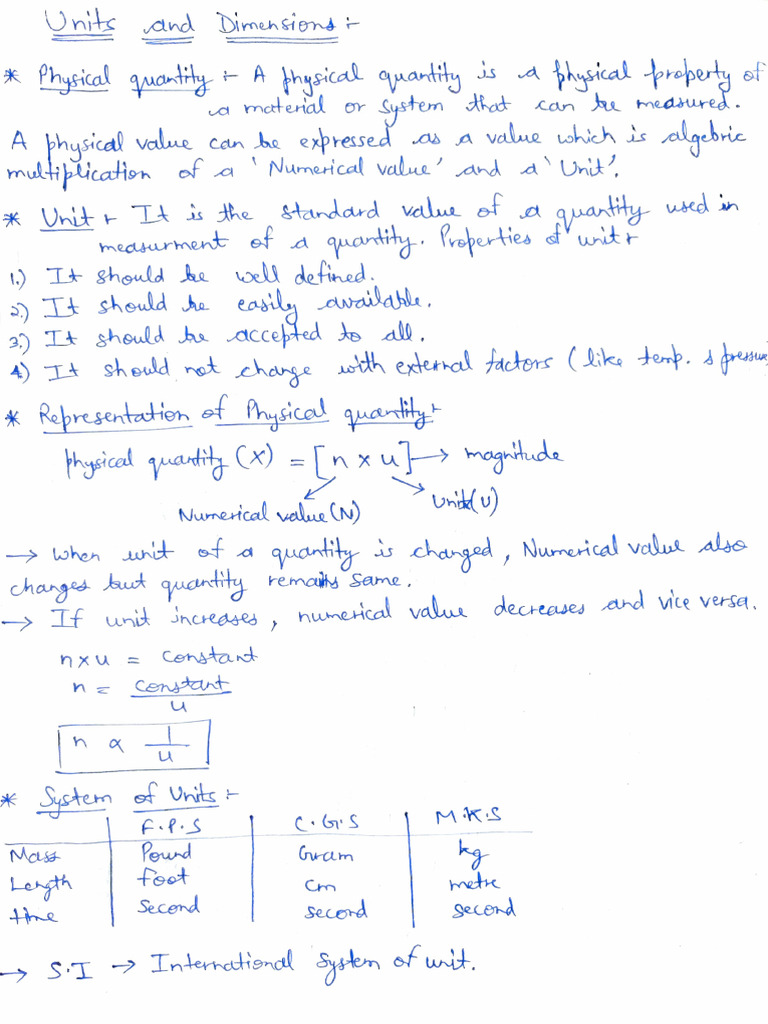 Units and Dimensions :-
* Physical quantity :- A physical quantity is a physical property of
a material or system that can be measured.
A physical value can be expressed as a value which is algebric
multiplication of a 'Numerical value' and a 'Unit'.
* Unit :- It is the standard value of a quantity used in
measurment of a quantity. Properties of unit :-
1.) It should be well defined.
2.) It should be easily available.
3.) It should be accepted to all.
4.) It should not change with external factors (like temp. & pressure)
* Representation of Physical quantity :-
physical quantity (X) = [n x u] → magnitude
Numerical value (N) Unit (U)
→ When unit of a quantity is changed, Numerical value also
changes but quantity remains same.
→ If unit increases, numerical value decreases and vice versa.
n x u = constant
n = constant
u
n ∝ 1
u
* System of Units :-
F.P.S C.G.S M.K.S
Mass Pound Gram kg
Length foot cm metre
time second second second
→ S.I → International System of unit.